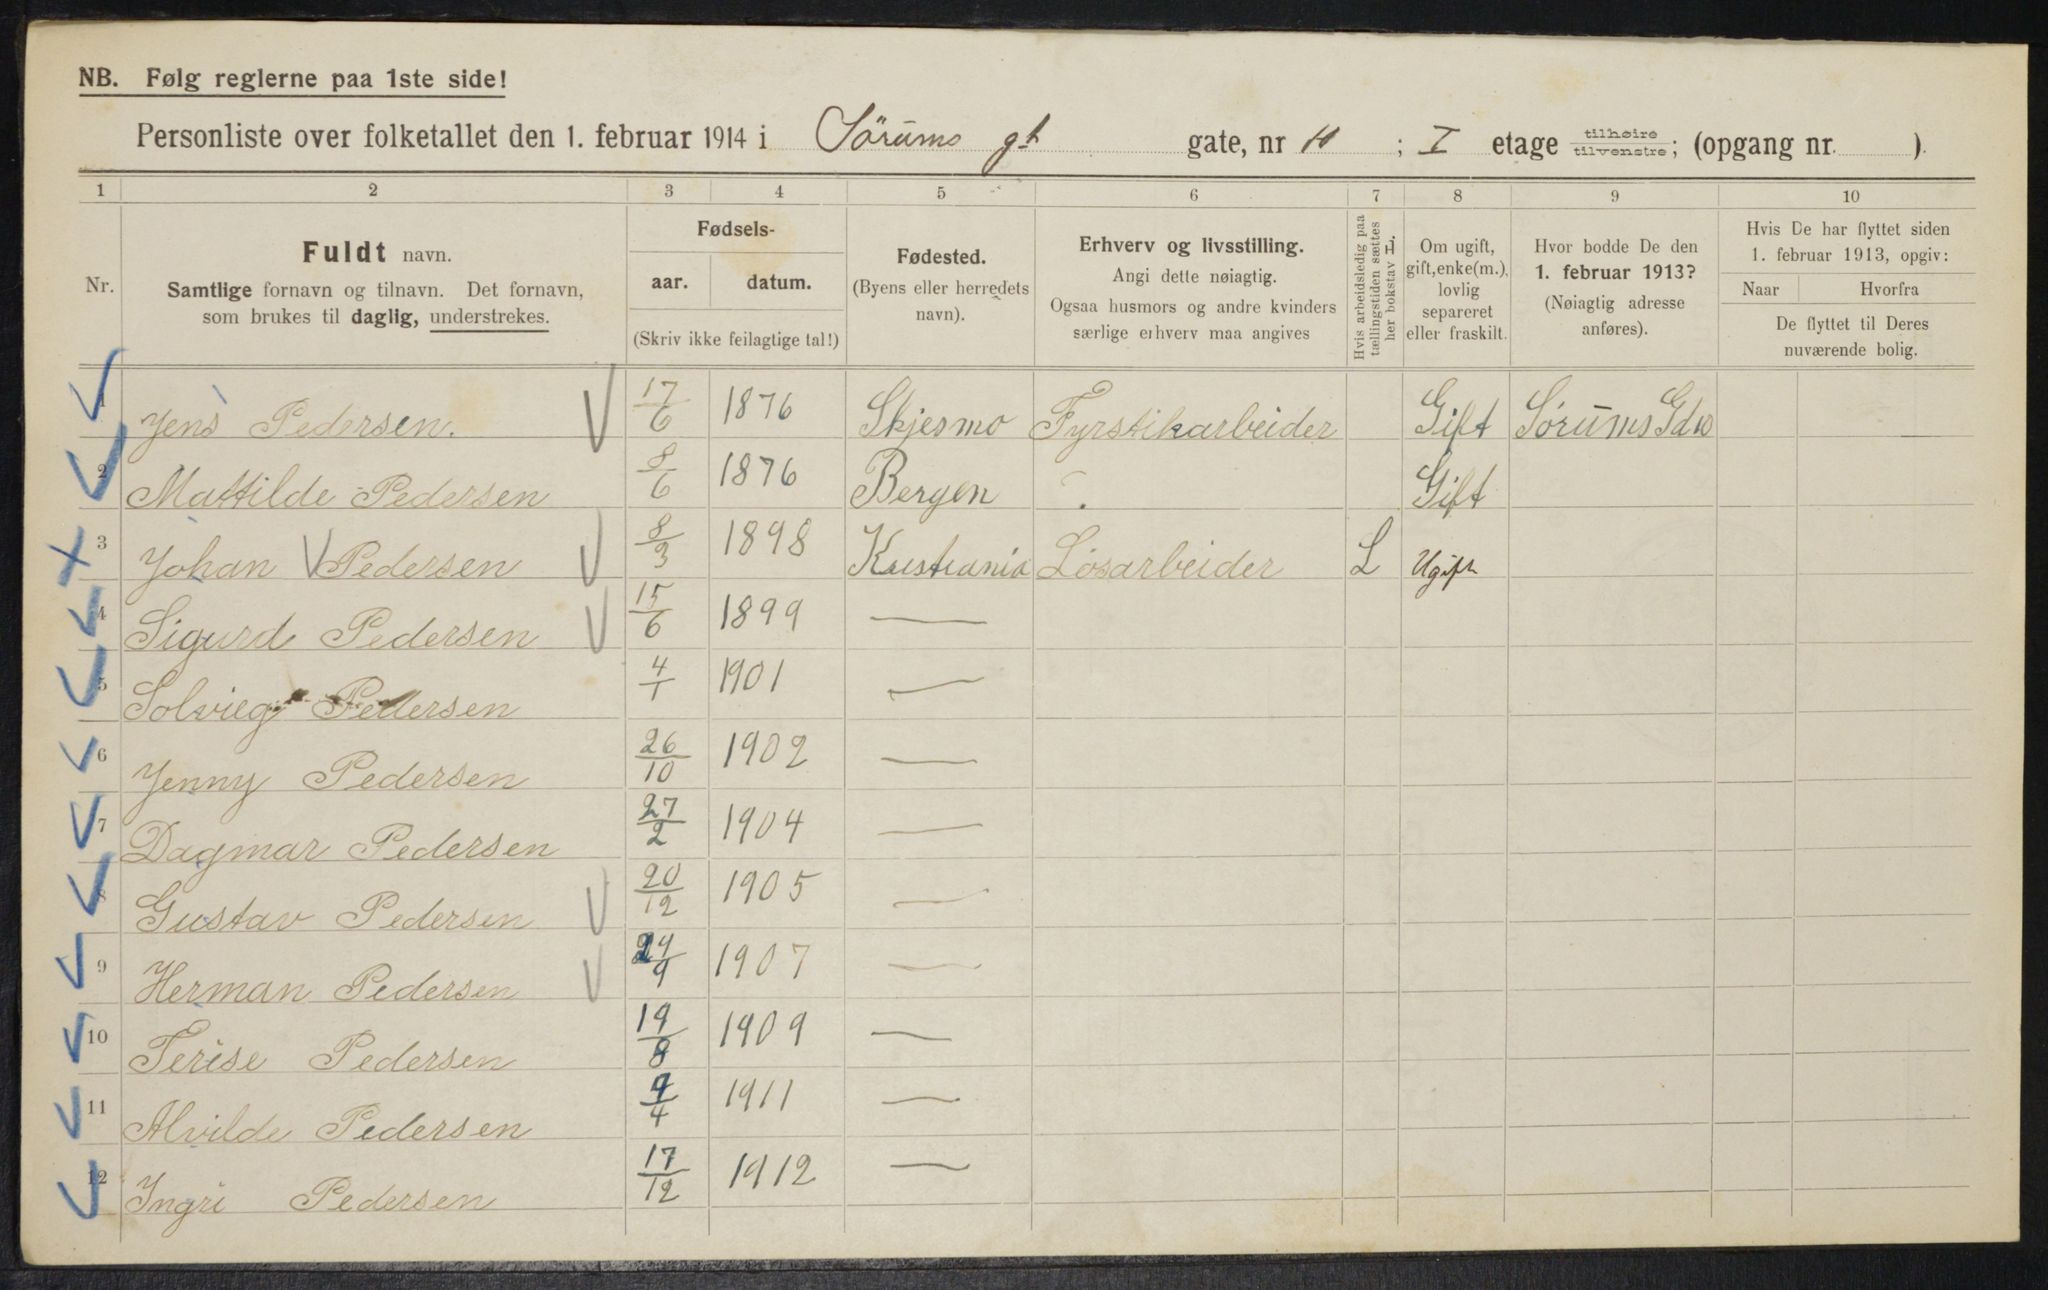 NB. Følg reglerne paa 1ste side!
Personliste over folketallet den 1. februar 1914 i Sörums gt gate, nr 10 ; I etage tilhøire tilvenstre; (opgang nr. ).
1 2 3 4 5 6 7 8 9 10
Nr.
Fuldt navn.
Samtlige fornavn og tilnavn. Det fornavn,
som brukes til daglig, understrekes.
Fødsels-
aar. datum.
(Skriv ikke feilagtige tal!)
Fødested.
(Byens eller herredets
navn).
Erhverv og livsstilling.
Angi dette nøiagtig.
Ogsaa husmors og andre kvinders
særlige erhverv maa angives
Hvis arbeidsledig paa
tællingstiden sættes
her bokstav L.
Om ugift,
gift, enke(m.),
lovlig
separeret
eller fraskilt.
Hvor bodde De den
1. februar 1913?
(Nøiagtig adresse
anføres).
Hvis De har flyttet siden
1. februar 1913, opgiv:
Naar Hvorfra
De flyttet til Deres
nuværende bolig.
1 Jens Pedersen. 17/6 1876 Skjesmo Fyrstikarbeider Gift Sörums Gd 10
2 Mattilde Pedersen 8/6 1876 Bergen Gift
3 Johan Pedersen 8/3 1898 Kristiania Løsarbeider L Ugift
4 Sigurd Pedersen 15/6 1899 —
5 Solvieg Pedersen 4/1 1901 —
6 Jenny Pedersen 26/10 1902 —
7 Dagmar Pedersen 27/2 1904 —
8 Gustav Pedersen 20/12 1905 —
9 Herman Pedersen 24/9 1907 —
10 Terise Pedersen 19/8 1909 —
11 Alvilde Pedersen /4 1911 —
12 Ingri Pedersen 17/12 1912 —